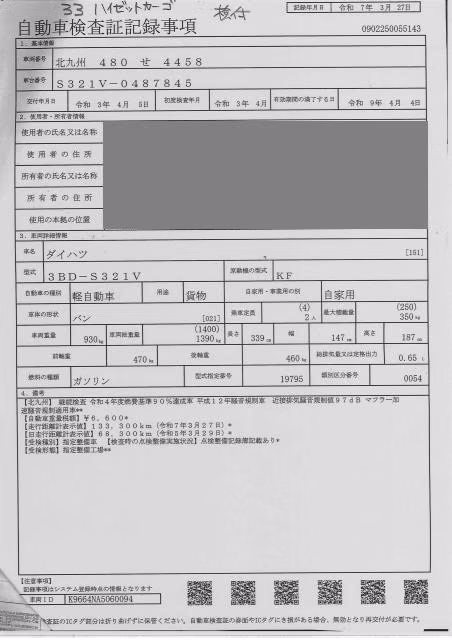 33 ハイゼットカーゴ 検付
記録年月日 令和 7年 3月 27日
自動車検査証記録事項
0902250055143
1. 基本情報
車両番号 北九州 480 せ 4458
車台番号 S321V-0487845
交付年月日 令和 3年 4月 5日 初度検査年月 令和 3年 4月 有効期間の満了する日 令和 9年 4月 4日
2. 使用者・所有者情報
使用者の氏名又は名称
使用者の住所
所有者の氏名又は名称
所有者の住所
使用の本拠の位置
3. 車両詳細情報
車名 ダイハツ [151]
型式 3BD-S321V 原動機の型式 KF
自動車の種別 軽自動車 用途 貨物 自家用・事業用の別 自家用
車体の形状 バン [021] 乗車定員 (4) 2人 最大積載量 (250) 350kg
車両重量 930kg 車両総重量 (1400) 1390kg 長さ 339cm 幅 147cm 高さ 187cm
前軸重 470kg 後軸重 460kg 総排気量又は定格出力 0.65L
燃料の種類 ガソリン 型式指定番号 19795 類別区分番号 0054
4. 備考
【北九州】 継続検査 令和4年度燃費基準90%達成車 平成12年騒音規制車 近接排気騒音規制値97dB マフラー加
速騒音規制適用車**
【自動車重量税額】¥6,600*
【走行距離計表示値】133,300km（令和7年3月27日）*
【旧走行距離計表示値】68,300km（令和5年3月29日）*
【受検種別】指定整備車 【検査時の点検整備実施状況】点検整備記録簿記載あり*
【受検形態】指定整備工場**
【注意事項】
記録事項はシステム登録時点の情報となります
車両ID K9664NA5060094
検査証のICタグ部分は折り曲げずに保管ください。自動車検査証の券面やICタグにき損がある場合、無効となり再交付が必要です。